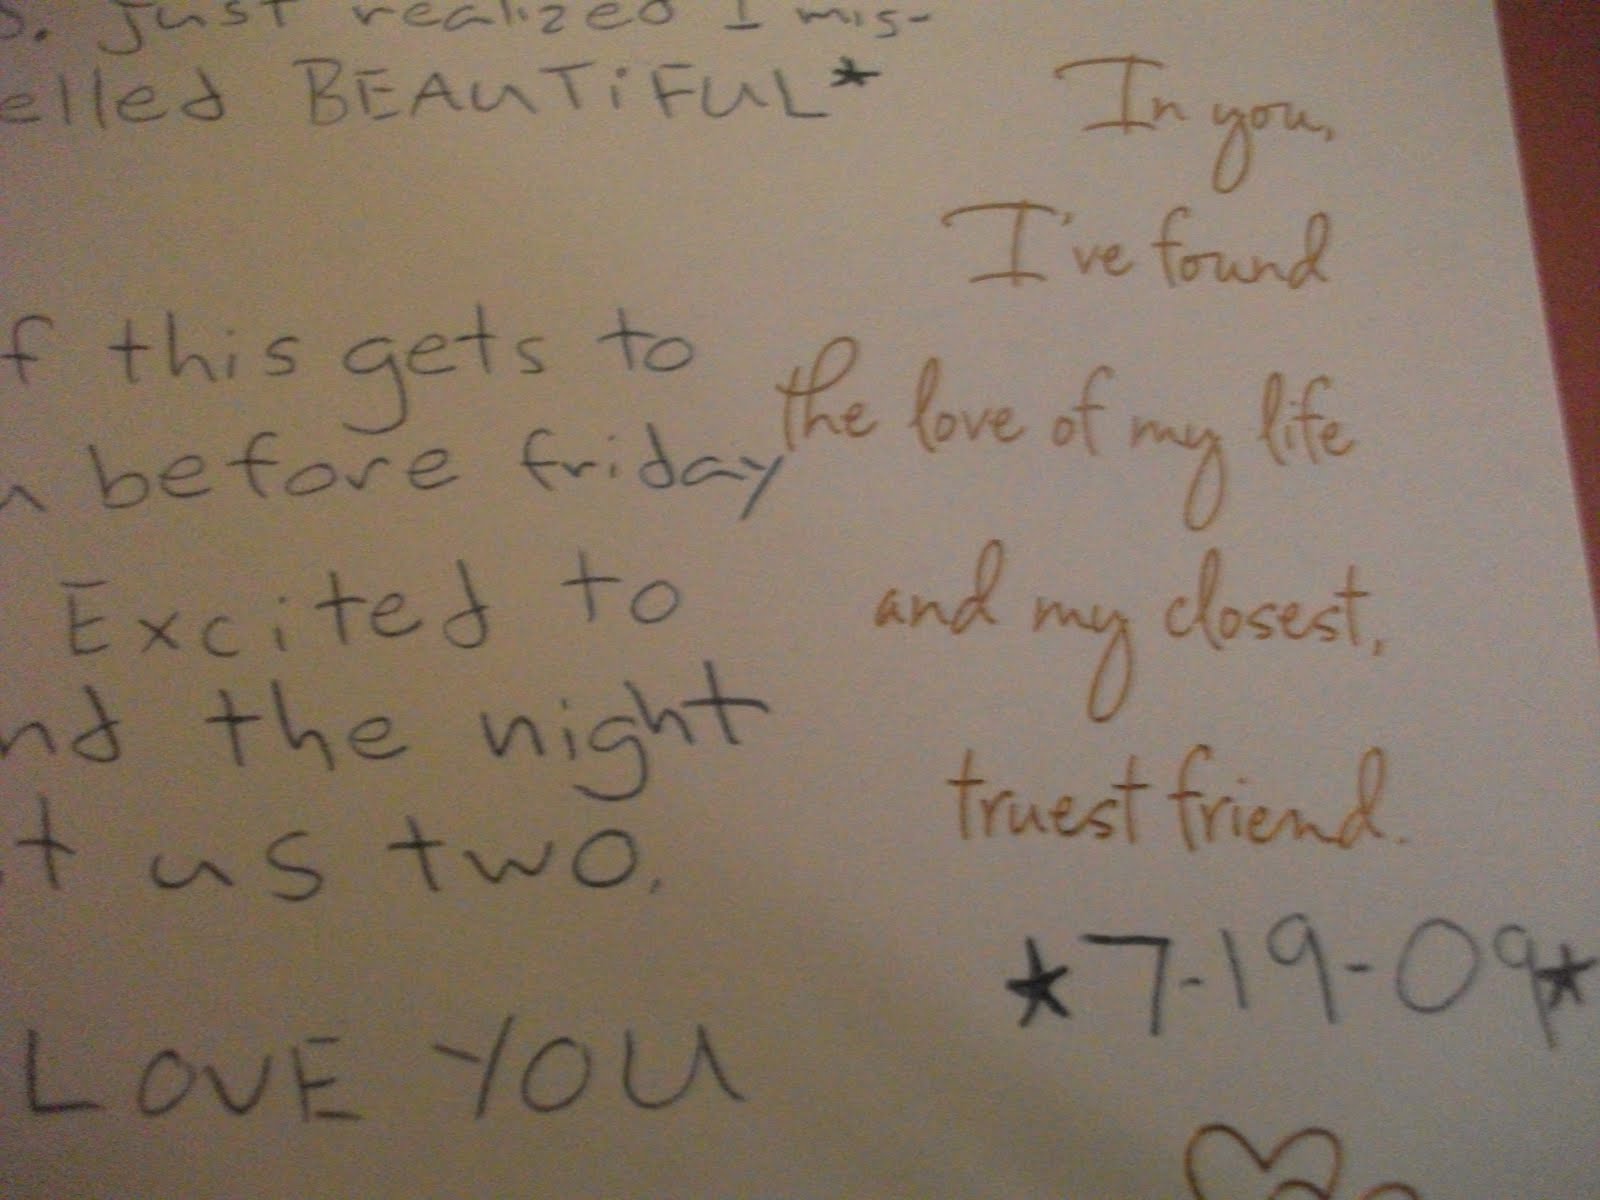 just realized I mis-
elled BEAUTiFUL*
f this gets to
before friday
Excited to
nd the night
t us two.
LOVE YOU
In you,
I've found
the love of my life
and my closest,
truest friend.
*7-19-09*